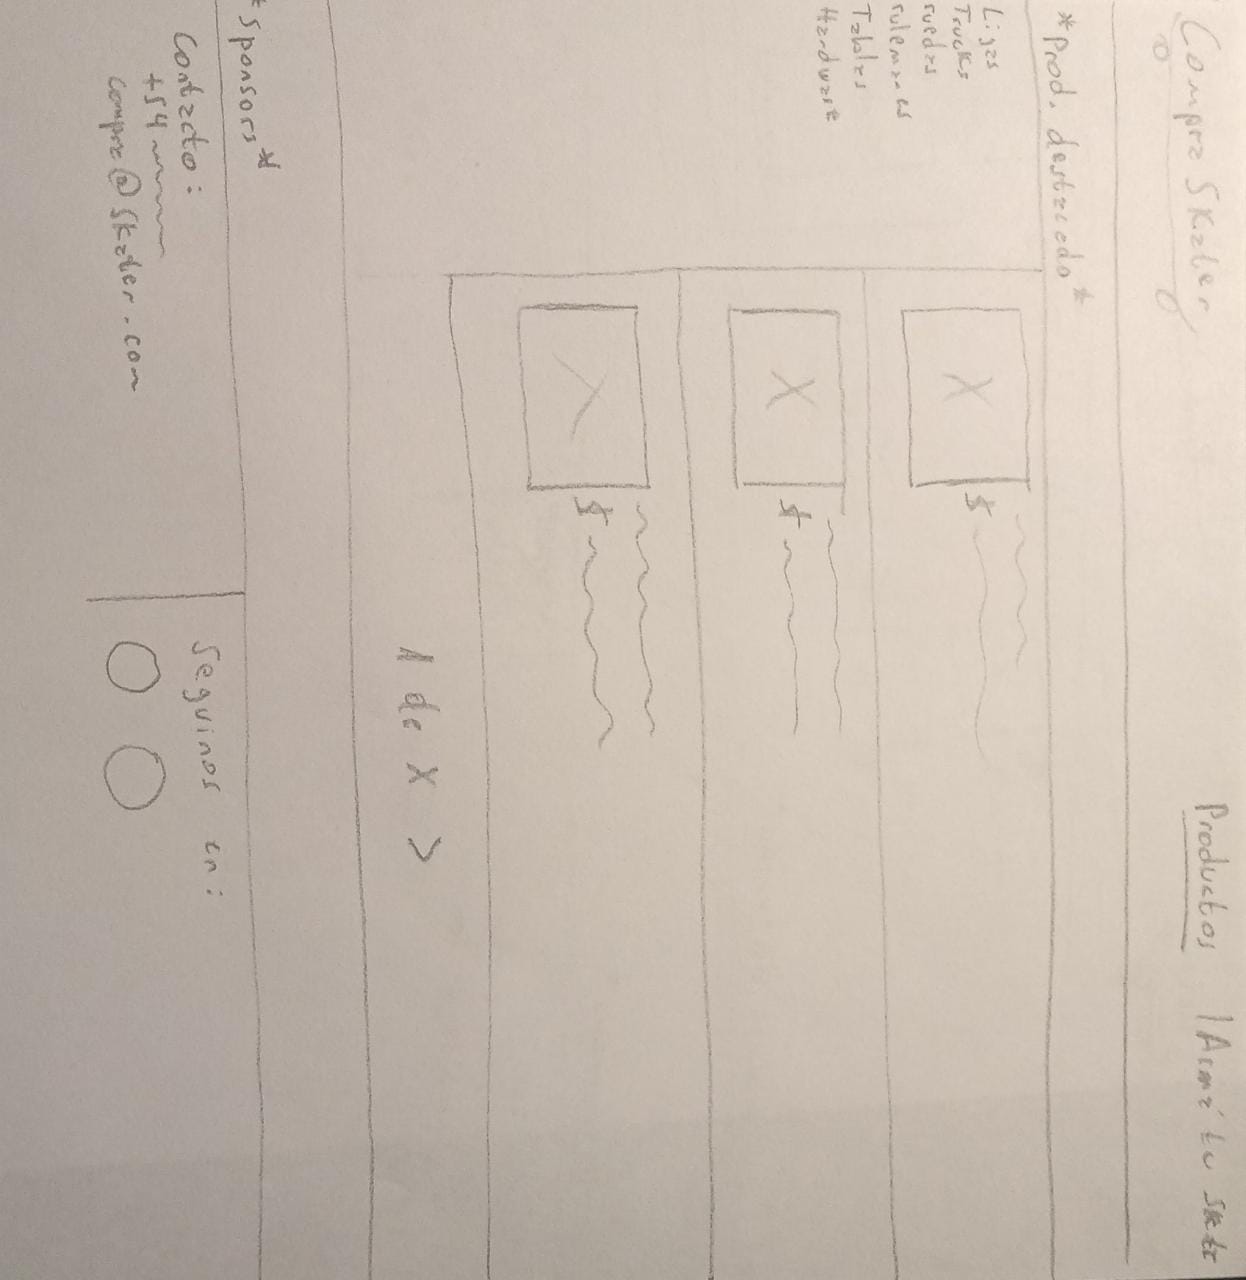 Compra Skater
Productos | Armá tu skate
*Prod. destacado*
Lijas
Trucks
ruedas
rulemanes
Tablas
Hardware
$
$
$
1 de X >
*Sponsors*
Contacto:
+54
compra@skater.com
Seguinos en: